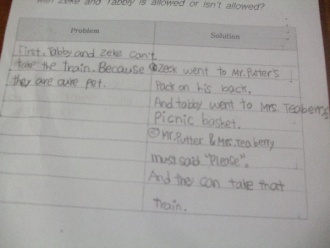 will Zeke and Tabby is allowed or isn't allowed?
Problem
Solution
First, Tabby and Zeke can't
take the train. Because
they are aure pet.
①Zeck went to Mr. Putter's
Pack on his back.
And tabby went to Mrs. Teaberry
Picnic basket.
② Mr. Putter & Mrs. Teaberry
must said "Please".
And they can take that
train.